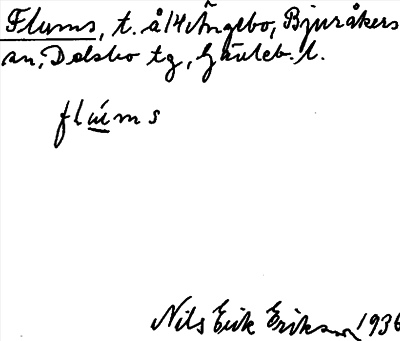 Flums, t. å 14 Ängebo, Bjuråkers
sn, Delsbo tg, Gävleb. l.
flúms
Nils Erik Erikson 1936